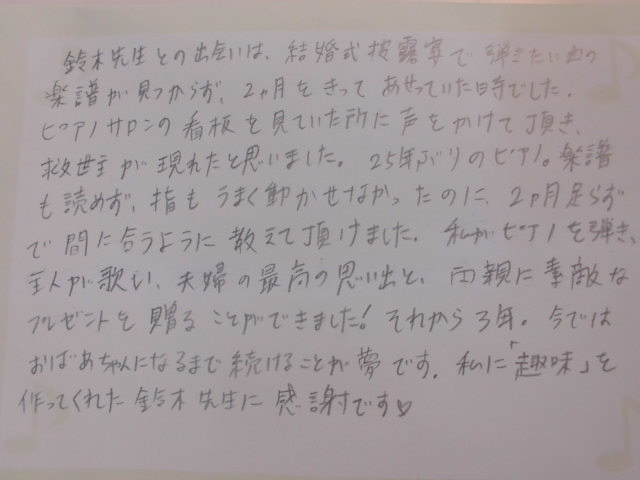 鈴木先生との出会いは、結婚式披露宴で弾きたい曲の
楽譜が見つからず、2ヶ月をきってあせっていた時でした。
ピアノサロンの看板を見ていた所に声をかけて頂き、
救世主が現れたと思いました。25年ぶりのピアノ。楽譜
も読めず、指もうまく動かせなかったのに、2ヶ月足らず
で間に合うように教えて頂けました。私がピアノを弾き、
主人が歌い、夫婦の最高の思い出と、両親に素敵な
プレゼントを贈ることができました!それから3年。今では
おばあちゃんになるまで続けることが夢です。私に「趣味」を
作ってくれた鈴木先生に感謝です♡